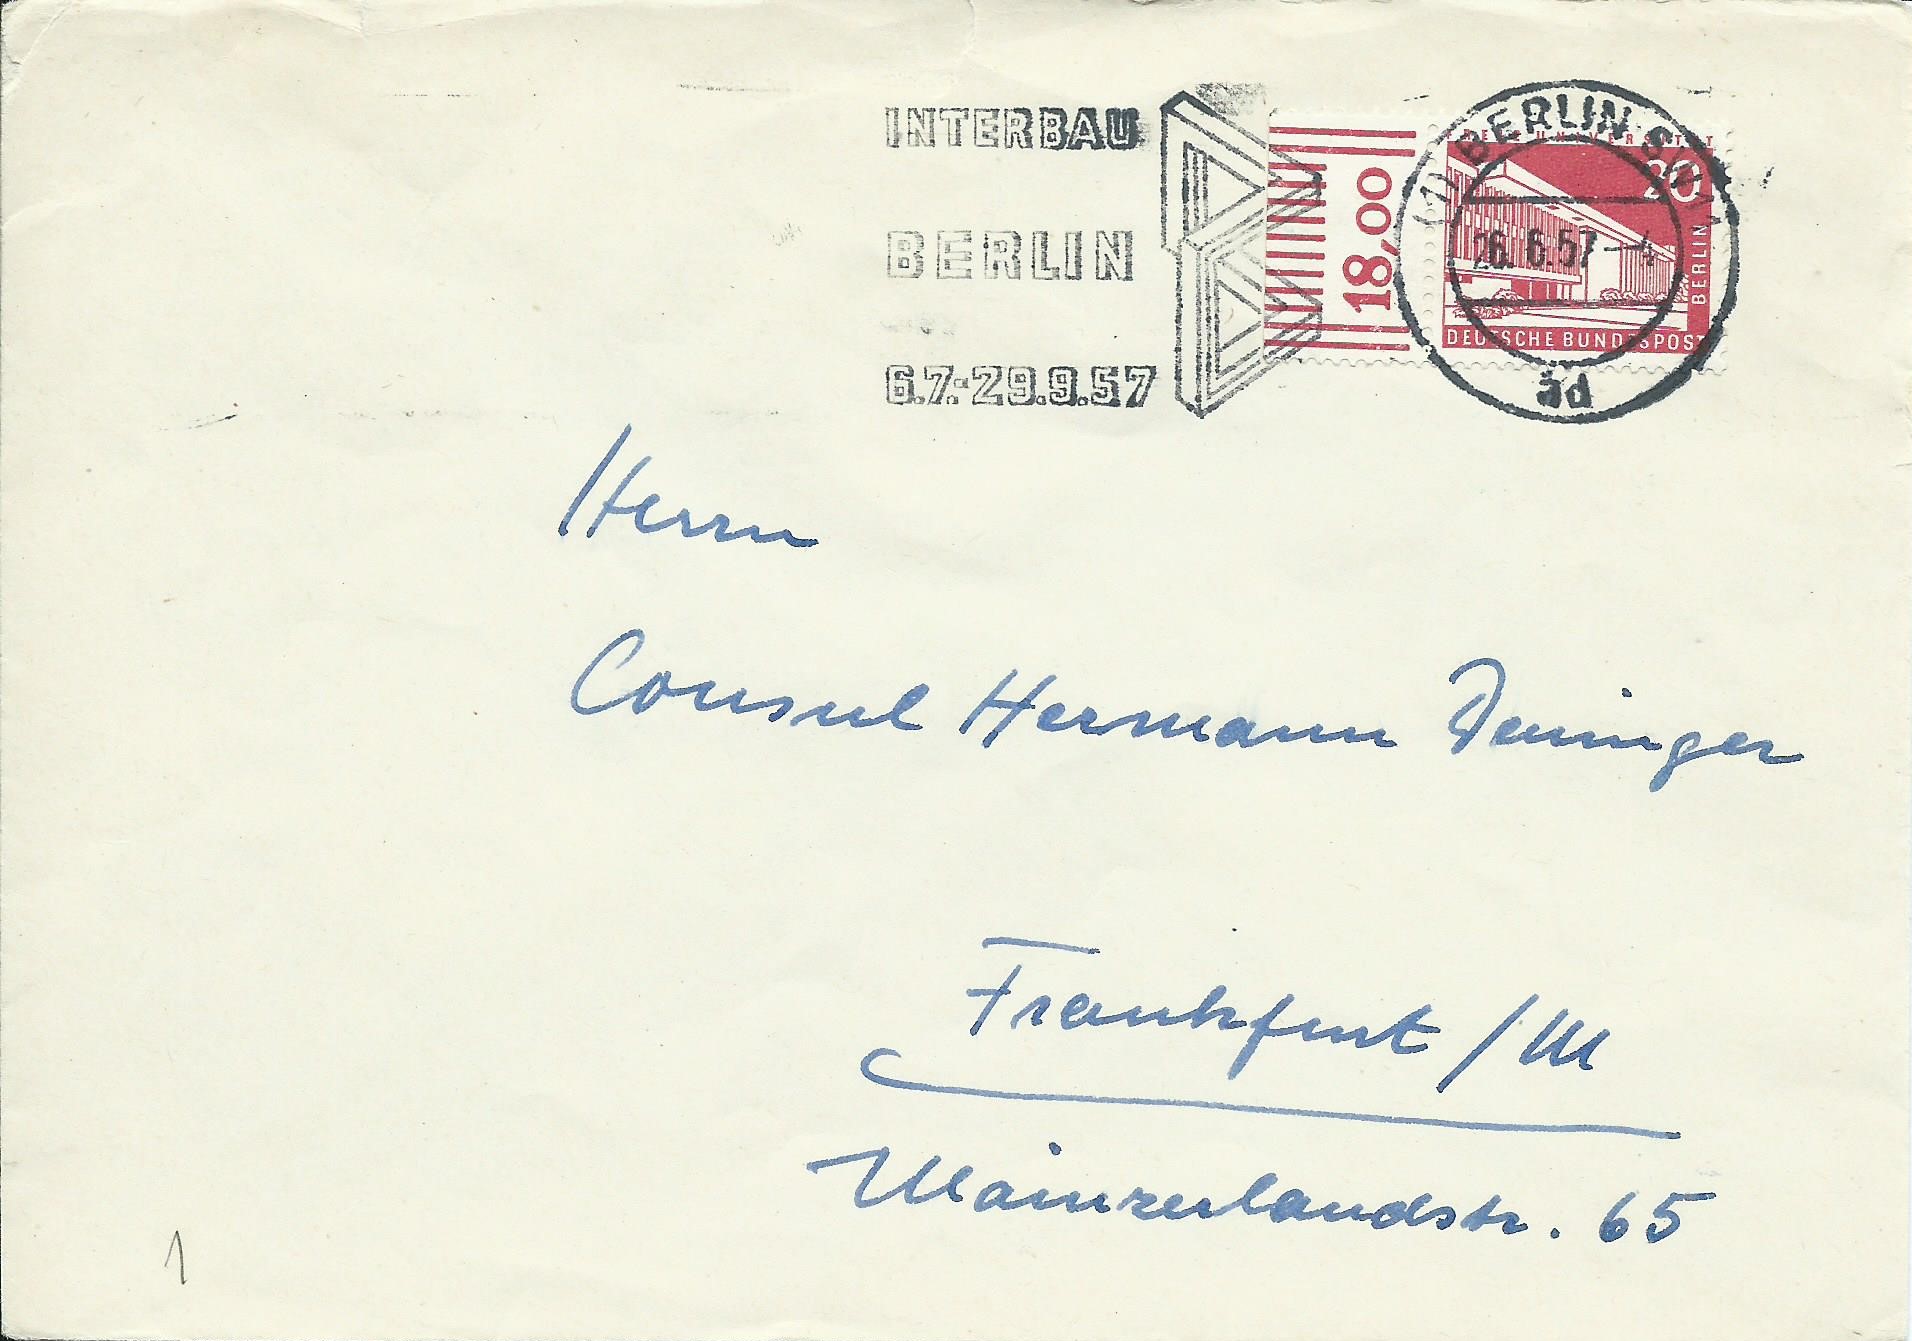 INTERBAU
BERLIN
6.7.-29.9.57
18,00
(1) BERLIN SW 11
26. 6.57-
äd
FREIE UNIVERSITÄT
20
BERLIN
DEUTSCHE BUNDESPOST
Herrn
Consul Hermann Deninger
Frankfurt / M
Mainzerlandstr. 65
1